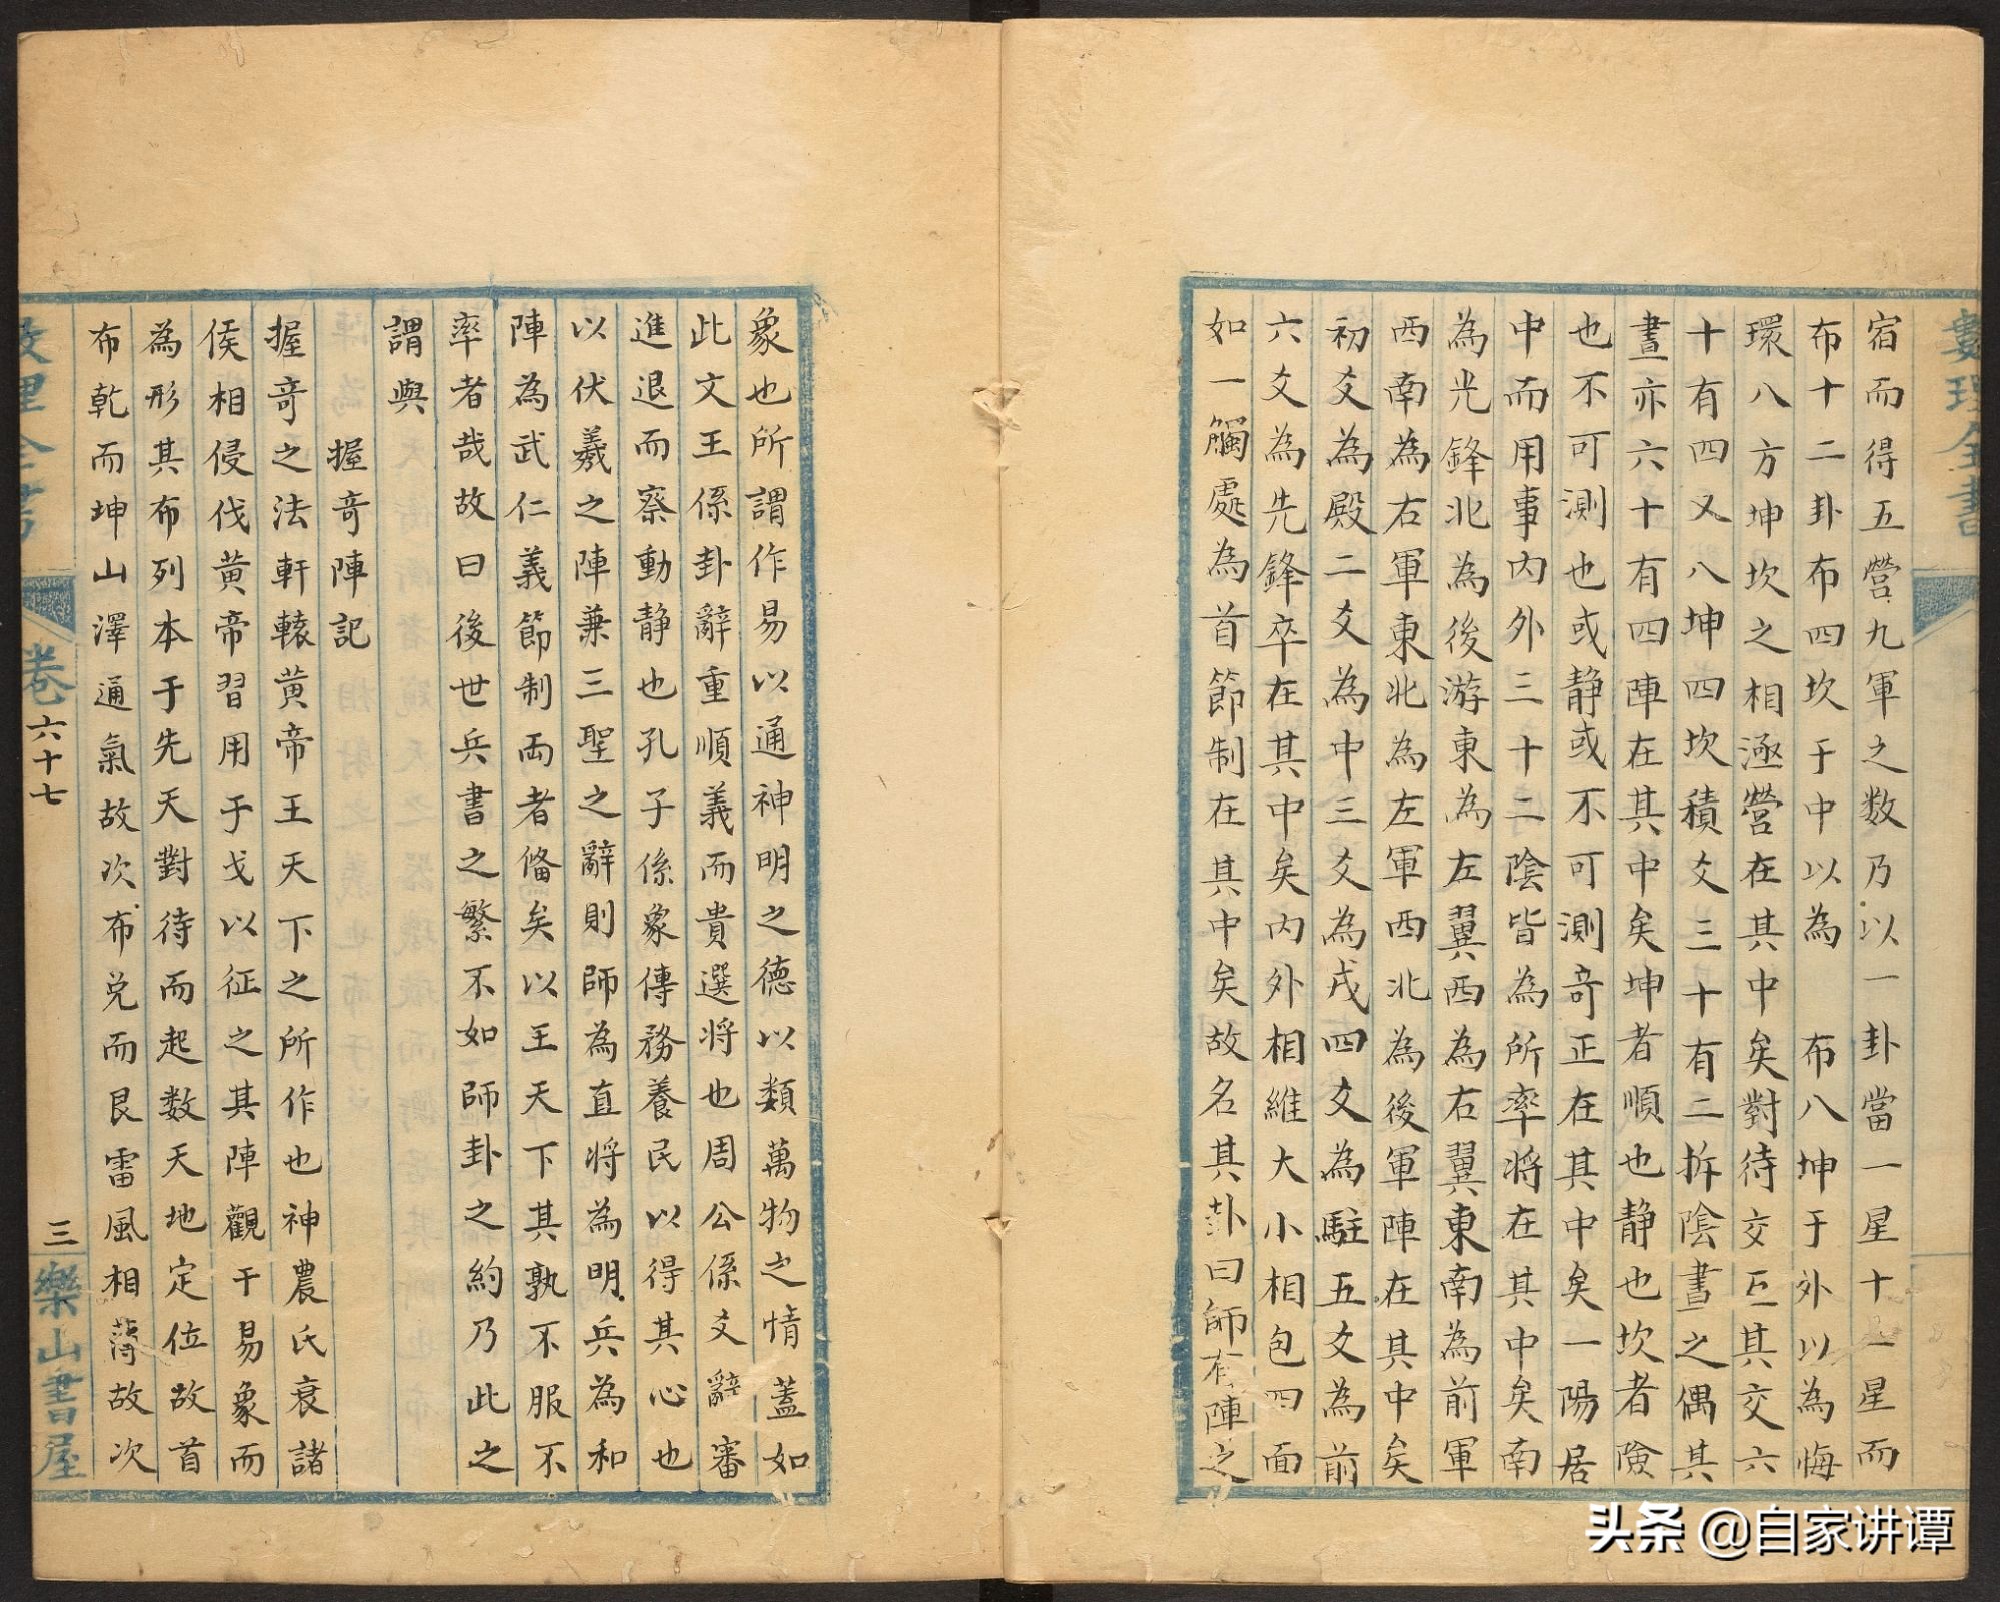 宿而得五營九軍之数乃以一卦當一星十二星而
布十二卦布四坎于中以為 布八坤于外以為悔
環八方坤坎之相逐營在其中矣對待交互其交六
十有四又八坤四坎積爻三十有二拆陰晝之偶其
晝亦六十有四陣在其中矣坤者順也静也坎者險
也不可測也或静或不可測竒正在其中矣一陽居
中而用事内外三十二陰皆為所率将在其中矣南
為光鋒北為後游東為左翼西為右翼東南為前軍
西南為右軍東北為左軍西北為後軍陣在其中矣
初爻為殿二爻為中三爻為戎四爻為駐五爻為前
六爻為先鋒卒在其中矣内外相維大小相包四面
如一觸處為首節制在其中矣故名其卦曰師有陣之
象也所謂作易以通神明之德以類萬物之情蓋如
此文王係卦辭重順義而貴選将也周公係爻辭審
進退而察動静也孔子係象傳務養民以得其心也
以伏羲之陣兼三聖之辭則師為直将為明兵為和
陣為武仁義節制両者俻矣以王天下其孰不服不
率者哉故曰後世兵書之繁不如師卦之約乃此之
謂與
握竒陣記
握竒之法軒轅黄帝王天下之所作也神農氏衰諸
侯相侵伐黄帝習用于戈以征之其陣觀干易象而
為形其布列本于先天對待而起数天地定位故首
布乾而坤山澤通氣故次布兑而艮雷風相薄故次
数理全書
卷六十七
三
樂山書屋
數理全書
头条 @自家讲谭